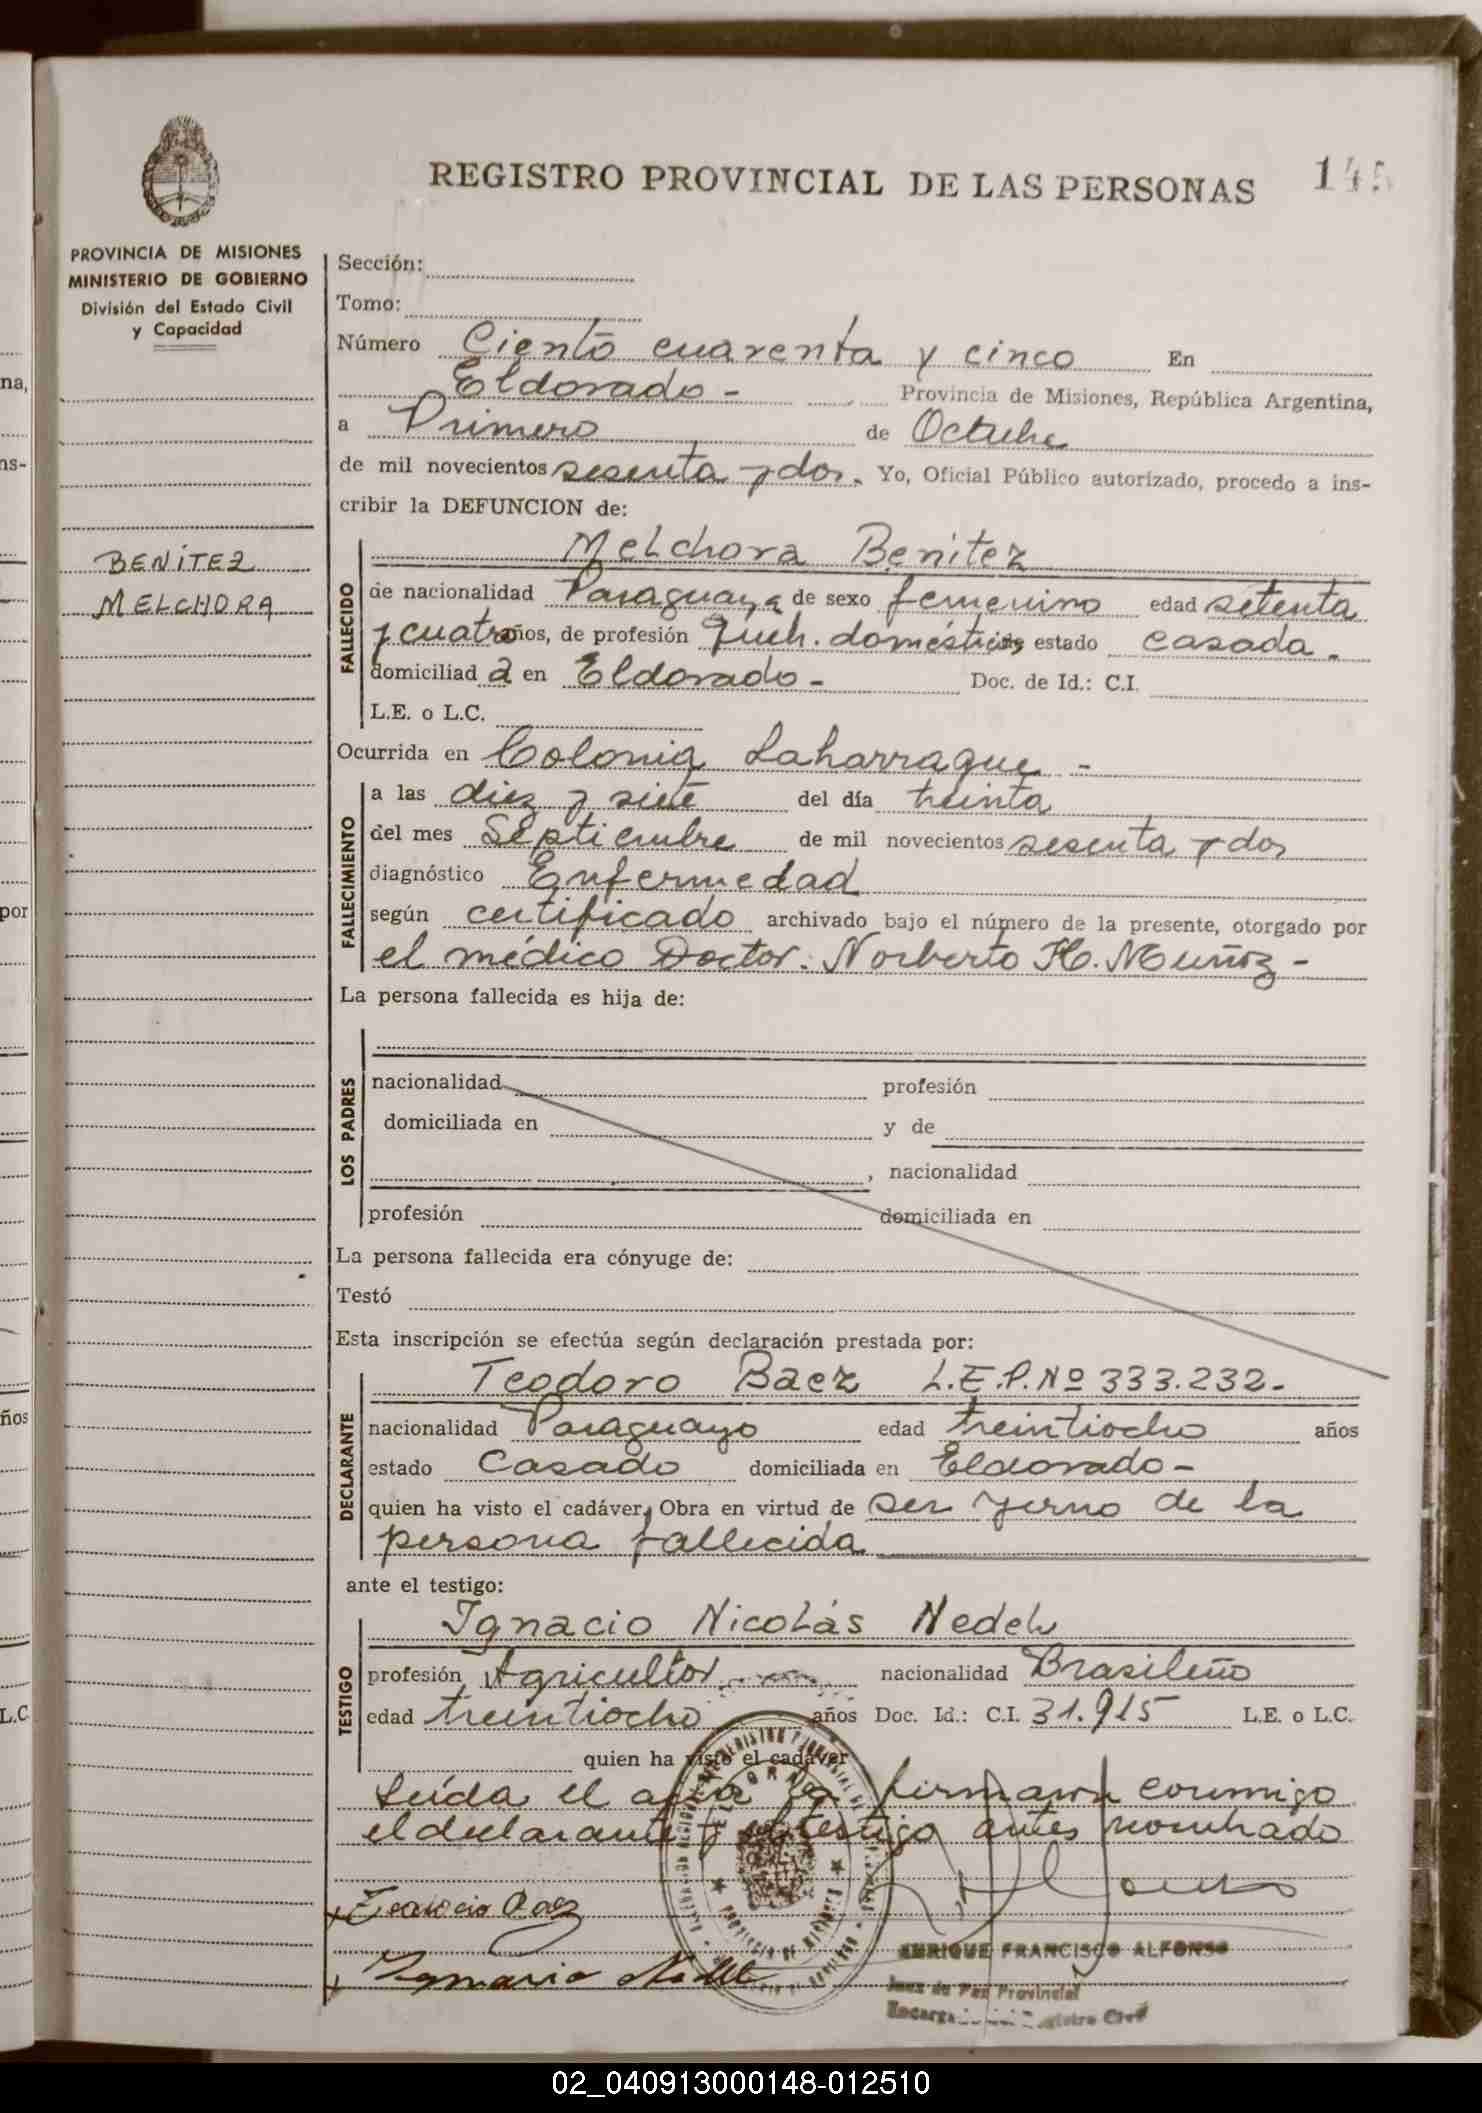 REGISTRO PROVINCIAL DE LAS PERSONAS
145
PROVINCIA DE MISIONES
MINISTERIO DE GOBIERNO
División del Estado Civil
y Capacidad
BENÍTEZ
MELCHORA
Sección:
Tomo:
Número Ciento cuarenta y cinco En
Eldorado - Provincia de Misiones, República Argentina,
a Primero de Octubre
de mil novecientos sesenta y dos. Yo, Oficial Público autorizado, procedo a ins-
cribir la DEFUNCION de:
Melchora Benitez
FALLECIDO
de nacionalidad Paraguaya de sexo femenino edad setenta
y cuatro años, de profesión Queh. domésticos estado casada.
domiciliad a en Eldorado - Doc. de Id.: C.I.
L.E. o L.C.
Ocurrida en Colonia Laharrague -
FALLECIMIENTO
a las diez y siete del día treinta
del mes Septiembre de mil novecientos sesenta y dos
diagnóstico Enfermedad
según certificado archivado bajo el número de la presente, otorgado por
el médico Doctor: Norberto H. Muñoz -
La persona fallecida es hija de:
LOS PADRES
nacionalidad profesión
domiciliada en y de
, nacionalidad
profesión domiciliada en
La persona fallecida era cónyuge de:
Testó
Esta inscripción se efectúa según declaración prestada por:
Teodoro Baez L.E.P.Nº 333.232-
DECLARANTE
nacionalidad Paraguayo edad treintiocho años
estado Casado domiciliada en Eldorado -
quien ha visto el cadáver, Obra en virtud de ser yerno de la
persona fallecida
ante el testigo:
Ignacio Nicolás Nedel
TESTIGO
profesión Agricultor nacionalidad Brasileño
edad treintiocho años Doc. Id.: C.I. 31.915 L.E. o L.C.
quien ha visto el cadáver
Leída el acta la firmaron conmigo
el declarante y el testigo antes nombrado
ENRIQUE FRANCISCO ALFONSO
Juez de Paz Provincial
Registro Civil
02_040913000148-012510